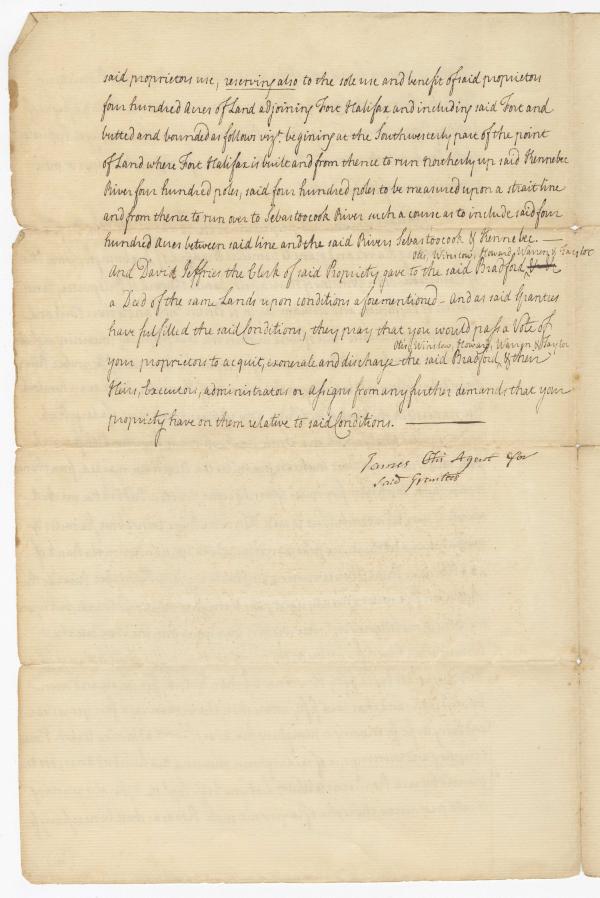 said proprietors use, reserving also to the sole use and benefit of said proprietors
four hundred Acres of Land adjoining Fort Halifax and including said Fort and
butted and bounded as follows vizt. begining at the Southwesterly part of the point
of Land where Fort Halifax is built and from thence to run Northerly up said Kennebec
River four hundred poles, said four hundred poles to be measured upon a strait line
and from thence to run over to Sebastoocook River such a course as to include said four
hundred Acres between said line and the said Rivers Sebastoocook & Kennebec. —
Otis, Winslow, Howard, Warren & Taylor
And David Jeffries the Clerk of said Propriety gave to the said Bradford
a Deed of the same Lands upon conditions aforementioned – and as said Grantees
have fulfilled the said Conditions, they pray that you would pass a Vote of
Otis, Winslow, Howard, Warren & Taylor
your proprietors to acquit, exonerate and discharge the said Bradford, & their
Heirs, Executors, administrators or Assigns from any further demands that your
propriety have on them relative to said Conditions. ———
James Otis Agent for
said Grantees